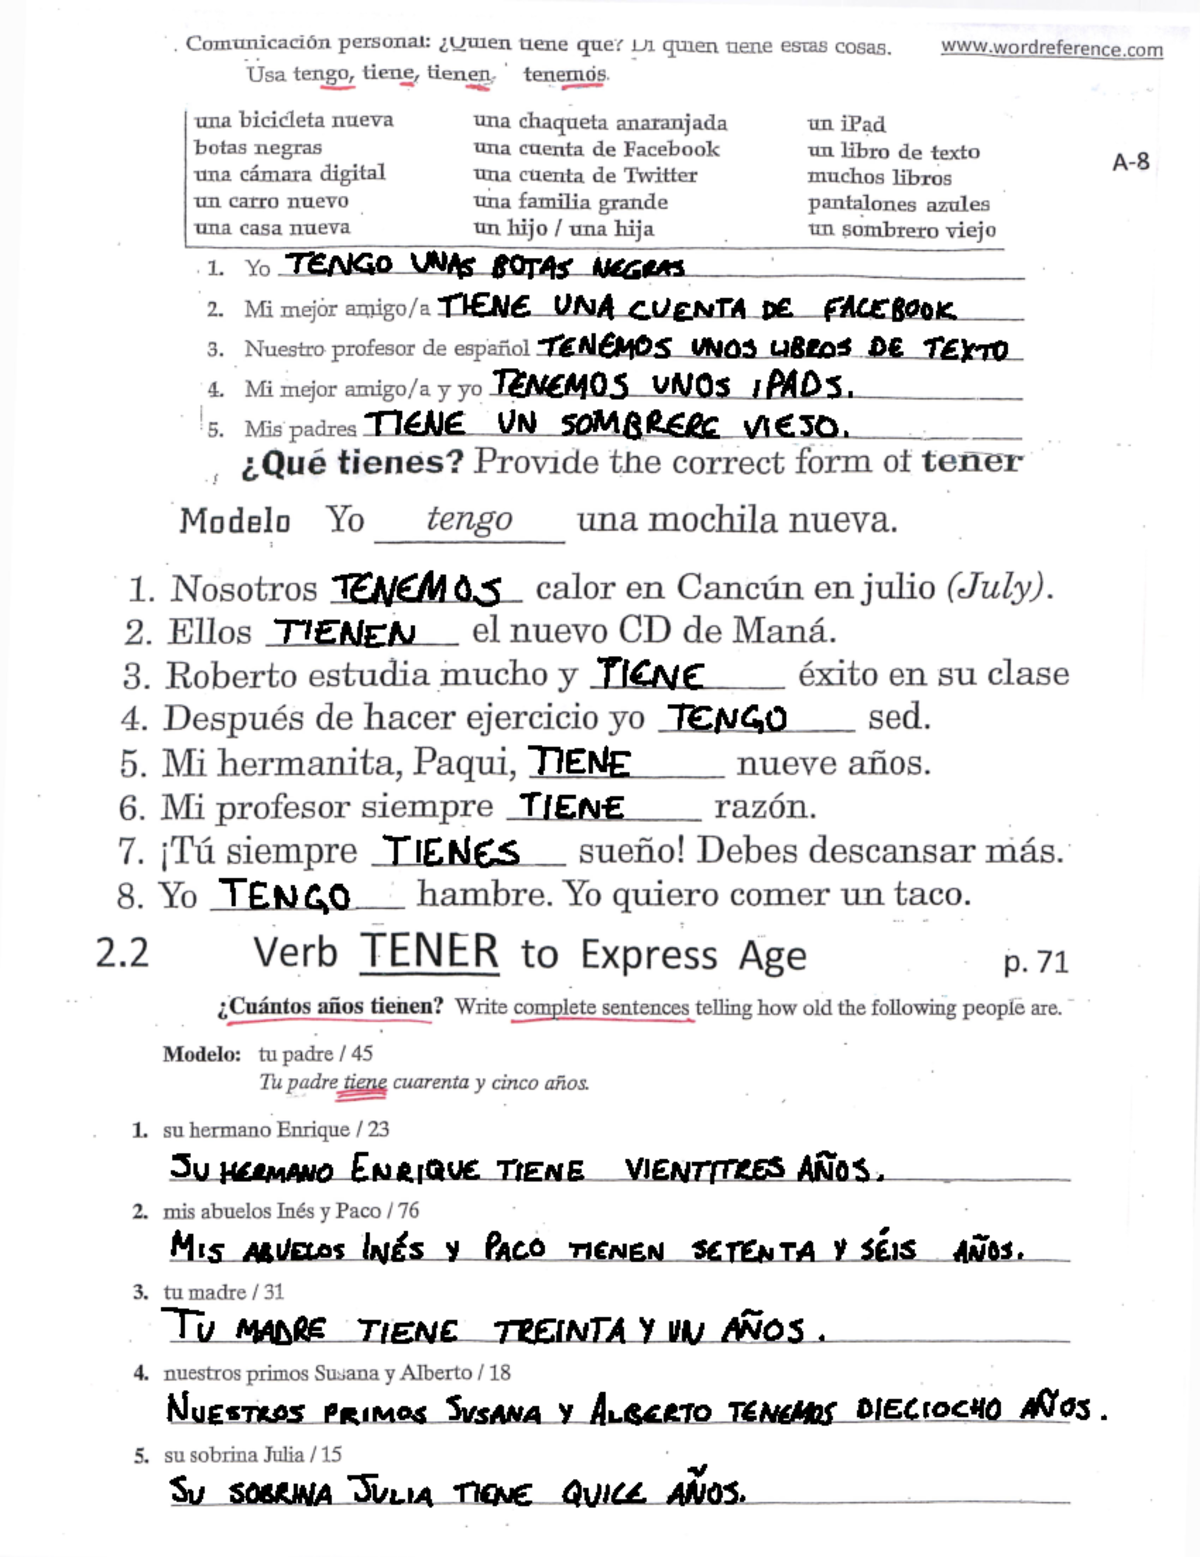 Comunicación personal: ¿Quién tiene que? Di quien tiene estas cosas. www.wordreference.com
Usa tengo, tiene, tienen, tenemos.
una bicicleta nueva una chaqueta anaranjada un iPad
botas negras una cuenta de Facebook un libro de texto
A-8
una cámara digital una cuenta de Twitter muchos libros
un carro nuevo una familia grande pantalones azules
una casa nueva un hijo / una hija un sombrero viejo
1. Yo TENGO UNAS BOTAS NEGRAS
2. Mi mejor amigo/a TIENE UNA CUENTA DE FACEBOOK
3. Nuestro profesor de español TENEMOS UNOS LIBROS DE TEXTO
4. Mi mejor amigo/a y yo TENEMOS UNOS IPADS.
5. Mis padres TIENE UN SOMBRERE VIEJO.
¿Qué tienes? Provide the correct form of tener
Modelo Yo tengo una mochila nueva.
1. Nosotros TENEMOS calor en Cancún en julio (July).
2. Ellos TIENEN el nuevo CD de Maná.
3. Roberto estudia mucho y TIENE éxito en su clase
4. Después de hacer ejercicio yo TENGO sed.
5. Mi hermanita, Paqui, TIENE nueve años.
6. Mi profesor siempre TIENE razón.
7. ¡Tú siempre TIENES sueño! Debes descansar más.
8. Yo TENGO hambre. Yo quiero comer un taco.
2.2 Verb TENER to Express Age p. 71
¿Cuántos años tienen? Write complete sentences telling how old the following people are.
Modelo: tu padre / 45
Tu padre tiene cuarenta y cinco años.
1. su hermano Enrique / 23
SU HERMANO ENRIQUE TIENE VIENTITRES AÑOS.
2. mis abuelos Inés y Paco / 76
MIS ABUELOS INÉS Y PACO TIENEN SETENTA Y SÉIS AÑOS.
3. tu madre / 31
TU MADRE TIENE TREINTA Y UN AÑOS.
4. nuestros primos Susana y Alberto / 18
NUESTROS PRIMOS SUSANA Y ALBERTO TENEMOS DIECIOCHO AÑOS.
5. su sobrina Julia / 15
SU SOBRINA JULIA TIENE QUICE AÑOS.